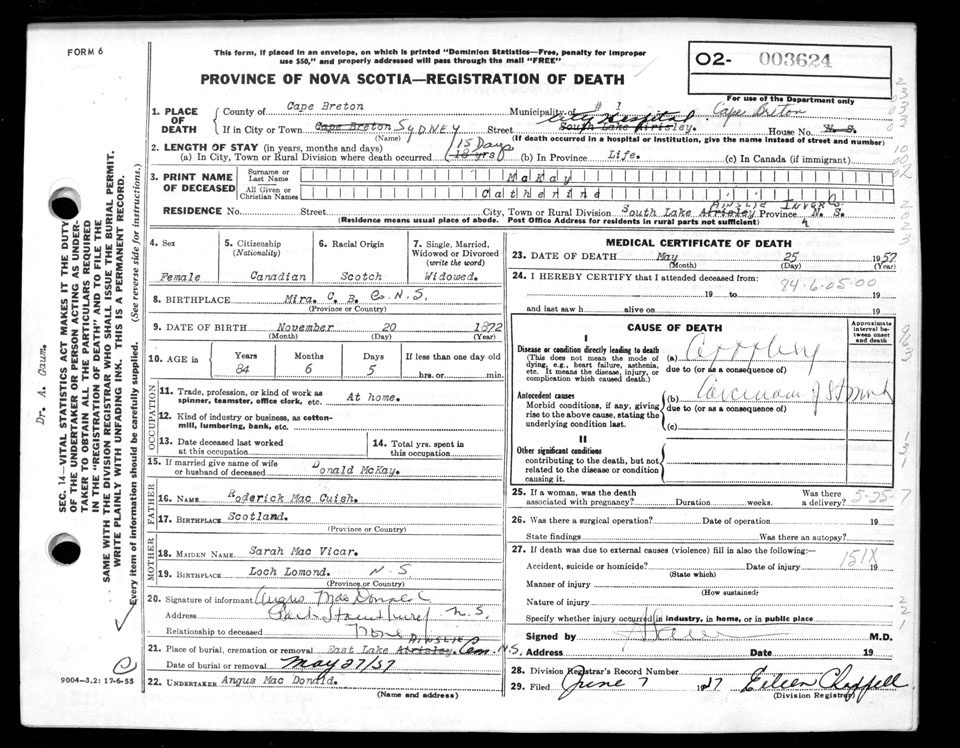 FORM 6
This form, if placed in an envelope, on which is printed "Dominion Statistics—Free, penalty for improper
use $50," and properly addressed will pass through the mail "FREE"
PROVINCE OF NOVA SCOTIA—REGISTRATION OF DEATH
O2- 003624
For use of the Department only
1. PLACE OF DEATH
County of Cape Breton Municipality of # 1 Cape Breton
City Hospital.
If in City or Town Cape Breton SYDNEY Street South Lake Airisley. House No. N. S.
(Name) (If death occurred in a hospital or institution, give the name instead of street and number)
2. LENGTH OF STAY (in years, months and days)
(a) In City, Town or Rural Division where death occurred (15 Days 18 yrs) (b) In Province Life. (c) In Canada (if immigrant)
3. PRINT NAME OF DECEASED
Surname or Last Name McKay
All Given or Christian Names Catherine
AINSLIE INVER Co
RESIDENCE No. Street City, Town or Rural Division South Lake Airisley Province N. S.
(Residence means usual place of abode. Post Office Address for residents in rural parts not sufficient)
4. Sex Female
5. Citizenship (Nationality) Canadian
6. Racial Origin Scotch
7. Single, Married, Widowed or Divorced (write the word) Widowed.
8. BIRTHPLACE Mira. C. B. Co. N. S.
(Province or Country)
9. DATE OF BIRTH November 20 1872
(Month) (Day) (Year)
10. AGE in Years 84 Months 6 Days 5 If less than one day old hrs. or min.
OCCUPATION
11. Trade, profession, or kind of work as spinner, teamster, office clerk, etc. At home.
12. Kind of industry or business, as cotton-mill, lumbering, bank, etc.
13. Date deceased last worked at this occupation
14. Total yrs. spent in this occupation
15. If married give name of wife or husband of deceased Donald McKay.
FATHER
16. NAME Roderick Mac Cuish.
17. BIRTHPLACE Scotland.
(Province or Country)
MOTHER
18. MAIDEN NAME Sarah Mac Vicar.
19. BIRTHPLACE Loch Lomond. N. S
(Province or Country)
20. Signature of informant Angus Mac Donald
Address N. S.
Relationship to deceased None
AINSLIE
21. Place of burial, cremation or removal East Lake Airisley. Cem. N.S.
Date of burial or removal May 27/57
22. UNDERTAKER Angus Mac Donald.
(Name and address)
MEDICAL CERTIFICATE OF DEATH
23. DATE OF DEATH May 25 1957
(Month) (Day) (Year)
24. I HEREBY CERTIFY that I attended deceased from: 84-6-05-00
19 to 19
and last saw h alive on 19
CAUSE OF DEATH
Approximate interval between onset and death
I
Disease or condition directly leading to death
(This does not mean the mode of dying, e.g., heart failure, asthenia, etc. It means the disease, injury, or complication which caused death.)
(a)
due to (or as a consequence of)
Antecedent causes
Morbid conditions, if any, giving rise to the above cause, stating the underlying condition last.
(b) Carcinoma of Stomach
due to (or as a consequence of)
(c)
II
Other significant conditions
contributing to the death, but not related to the disease or condition causing it.
25. If a woman, was the death associated with pregnancy? Duration weeks. Was there a delivery? 5-25-7
26. Was there a surgical operation? Date of operation 19
State findings Was there an autopsy?
27. If death was due to external causes (violence) fill in also the following:—
Accident, suicide or homicide? Date of injury 19
(State which)
151X
Manner of injury
(How sustained)
Nature of injury
Specify whether injury occurred in industry, in home, or in public place
Signed by M.D.
Address Date 19
28. Division Registrar's Record Number
29. Filed June 7 1957 Eileen Chappell
(Division Registrar)
SEC. 14—VITAL STATISTICS ACT MAKES IT THE DUTY
OF THE UNDERTAKER OR PERSON ACTING AS UNDER-
TAKER TO OBTAIN ALL THE PARTICULARS REQUIRED
IN THE "REGISTRATION OF DEATH" AND TO FILE THE
SAME WITH THE DIVISION REGISTRAR WHO SHALL ISSUE THE BURIAL PERMIT.
WRITE PLAINLY WITH UNFADING INK. THIS IS A PERMANENT RECORD.
Every item of information should be carefully supplied. (See reverse side for instructions.)
Dr. A. Gaum.
9004-3.2: 17-6-55